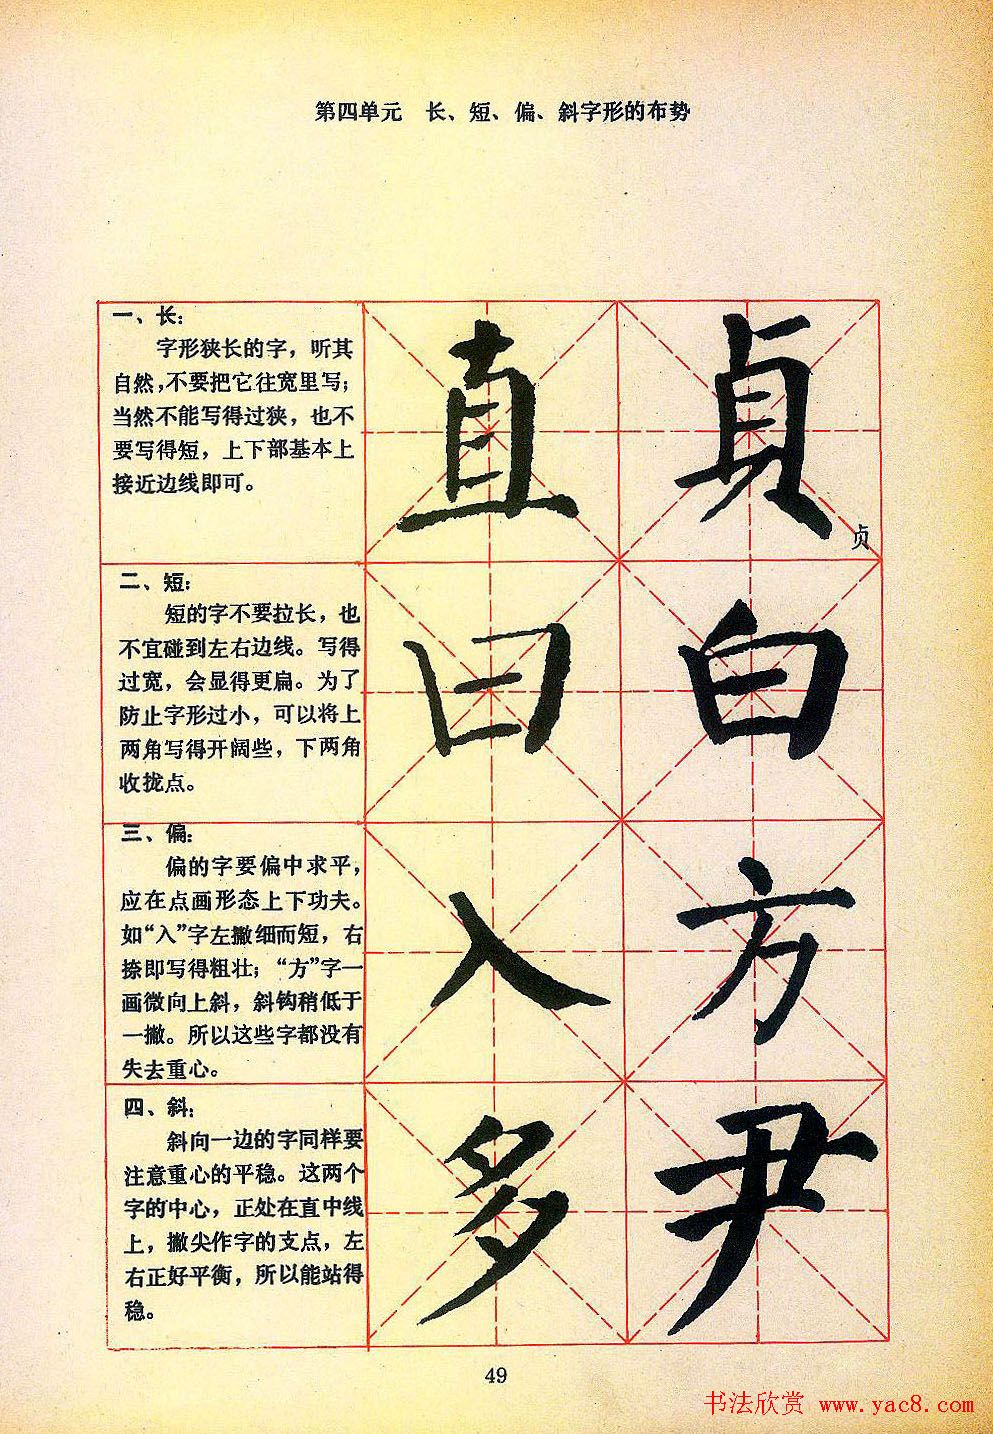 第四单元 长、短、偏、斜字形的布势
一、长：
字形狭长的字，听其
自然，不要把它往宽里写；
当然不能写得过狭，也不
要写得短，上下部基本上
接近边线即可。
直 貞
贞
二、短：
短的字不要拉长，也
不宜碰到左右边线。写得
过宽，会显得更扁。为了
防止字形过小，可以将上
两角写得开阔些，下两角
收拢点。
曰 白
三、偏：
偏的字要偏中求平，
应在点画形态上下功夫。
如“入”字左撇细而短，右
捺即写得粗壮；“方”字一
画微向上斜，斜钩稍低于
一撇。所以这些字都没有
失去重心。
入 方
四、斜：
斜向一边的字同样要
注意重心的平稳。这两个
字的中心，正处在直中线
上，撇尖作字的支点，左
右正好平衡，所以能站得
稳。
多 尹
49
书法欣赏 www.yac8.com